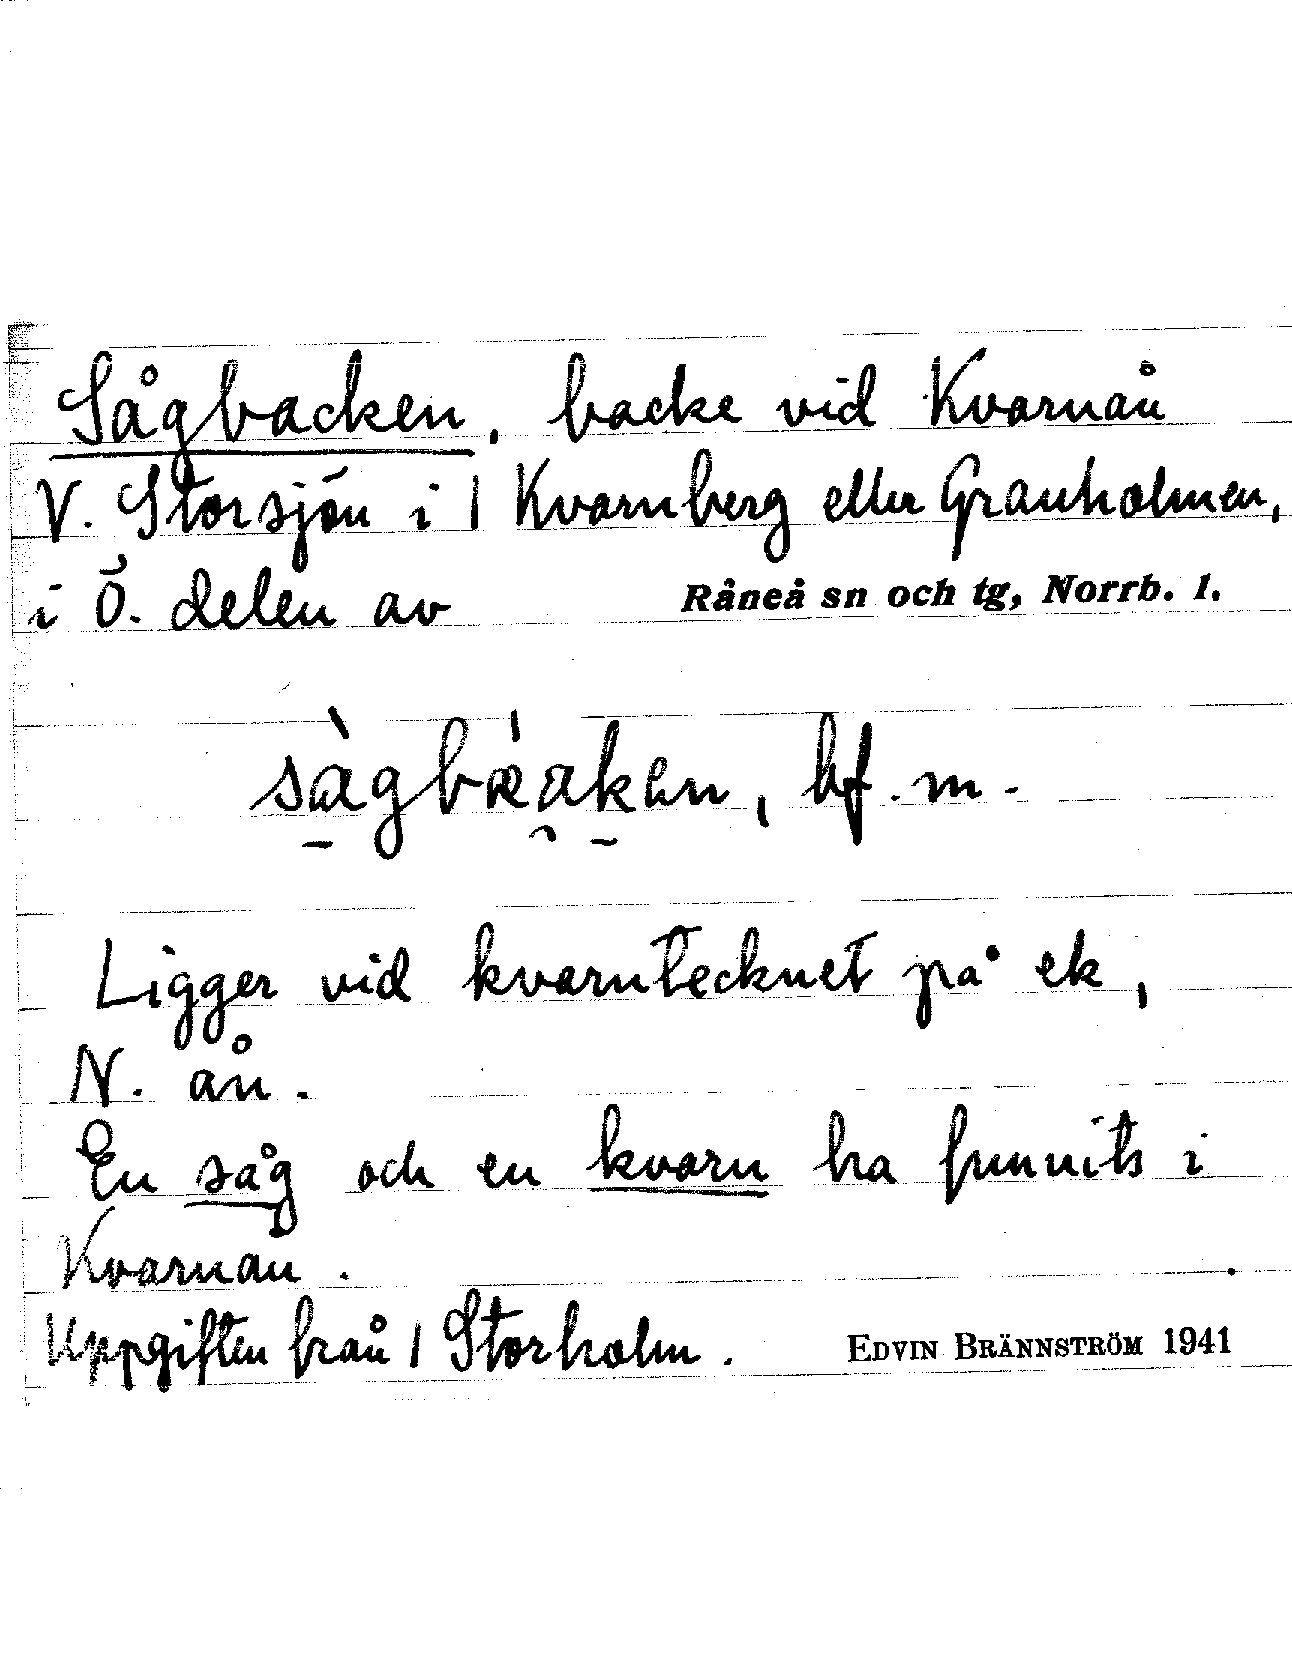 Sågbacken, backe vid Kvarnån
V. Storsjön i 1 Kvarnberg eller Granholmen,
i Ö. delen av Råneå sn och tg, Norrb. l.
bf. m.
Ligger vid kvarntecknet på ek,
N. ån.
En såg och en kvarn ha funnits i
Kvarnan.
Uppgiften från 1 Storholm. EDVIN BRÄNNSTRÖM 1941